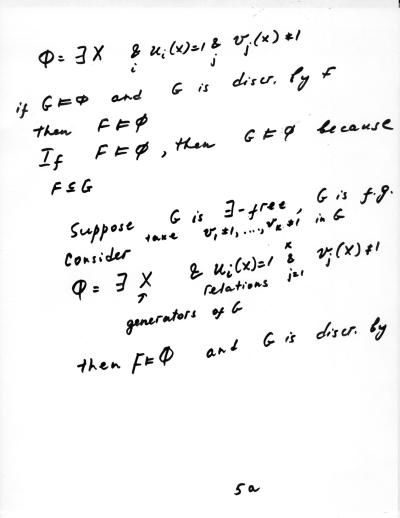 Φ = ∃ X & u_i(x)=1 & v_j(x)≠1
i j
if G⊨Φ and G is discr. by F
then F⊨Φ
If F⊨Φ, then G⊨Φ because
F≤G
Suppose G is ∃-free, G is f.g.
Consider take v_1≠1, ..., v_k≠1 in G
Φ = ∃ X & u_i(x)=1 & v_j(x)≠1
↑ relations j=1 k
generators of G
then F⊨Φ and G is discr. by
5a